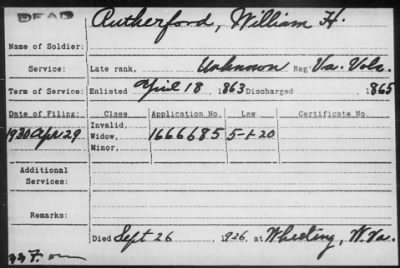 DEAD
Rutherford, William H.
Name of Soldier:
Service: Late rank, Unknown Reg' Va. Vols.
Term of Service: Enlisted April 18 1863 Discharged 1865
Date of Filing: Class Application No. Law Certificate No.
Invalid,
1930 Apr 29 Widow, 1666685 5-1-20
Minor,
Additional
Services:
Remarks:
Died Sept 26 1926, at Wheeling, W. Va.